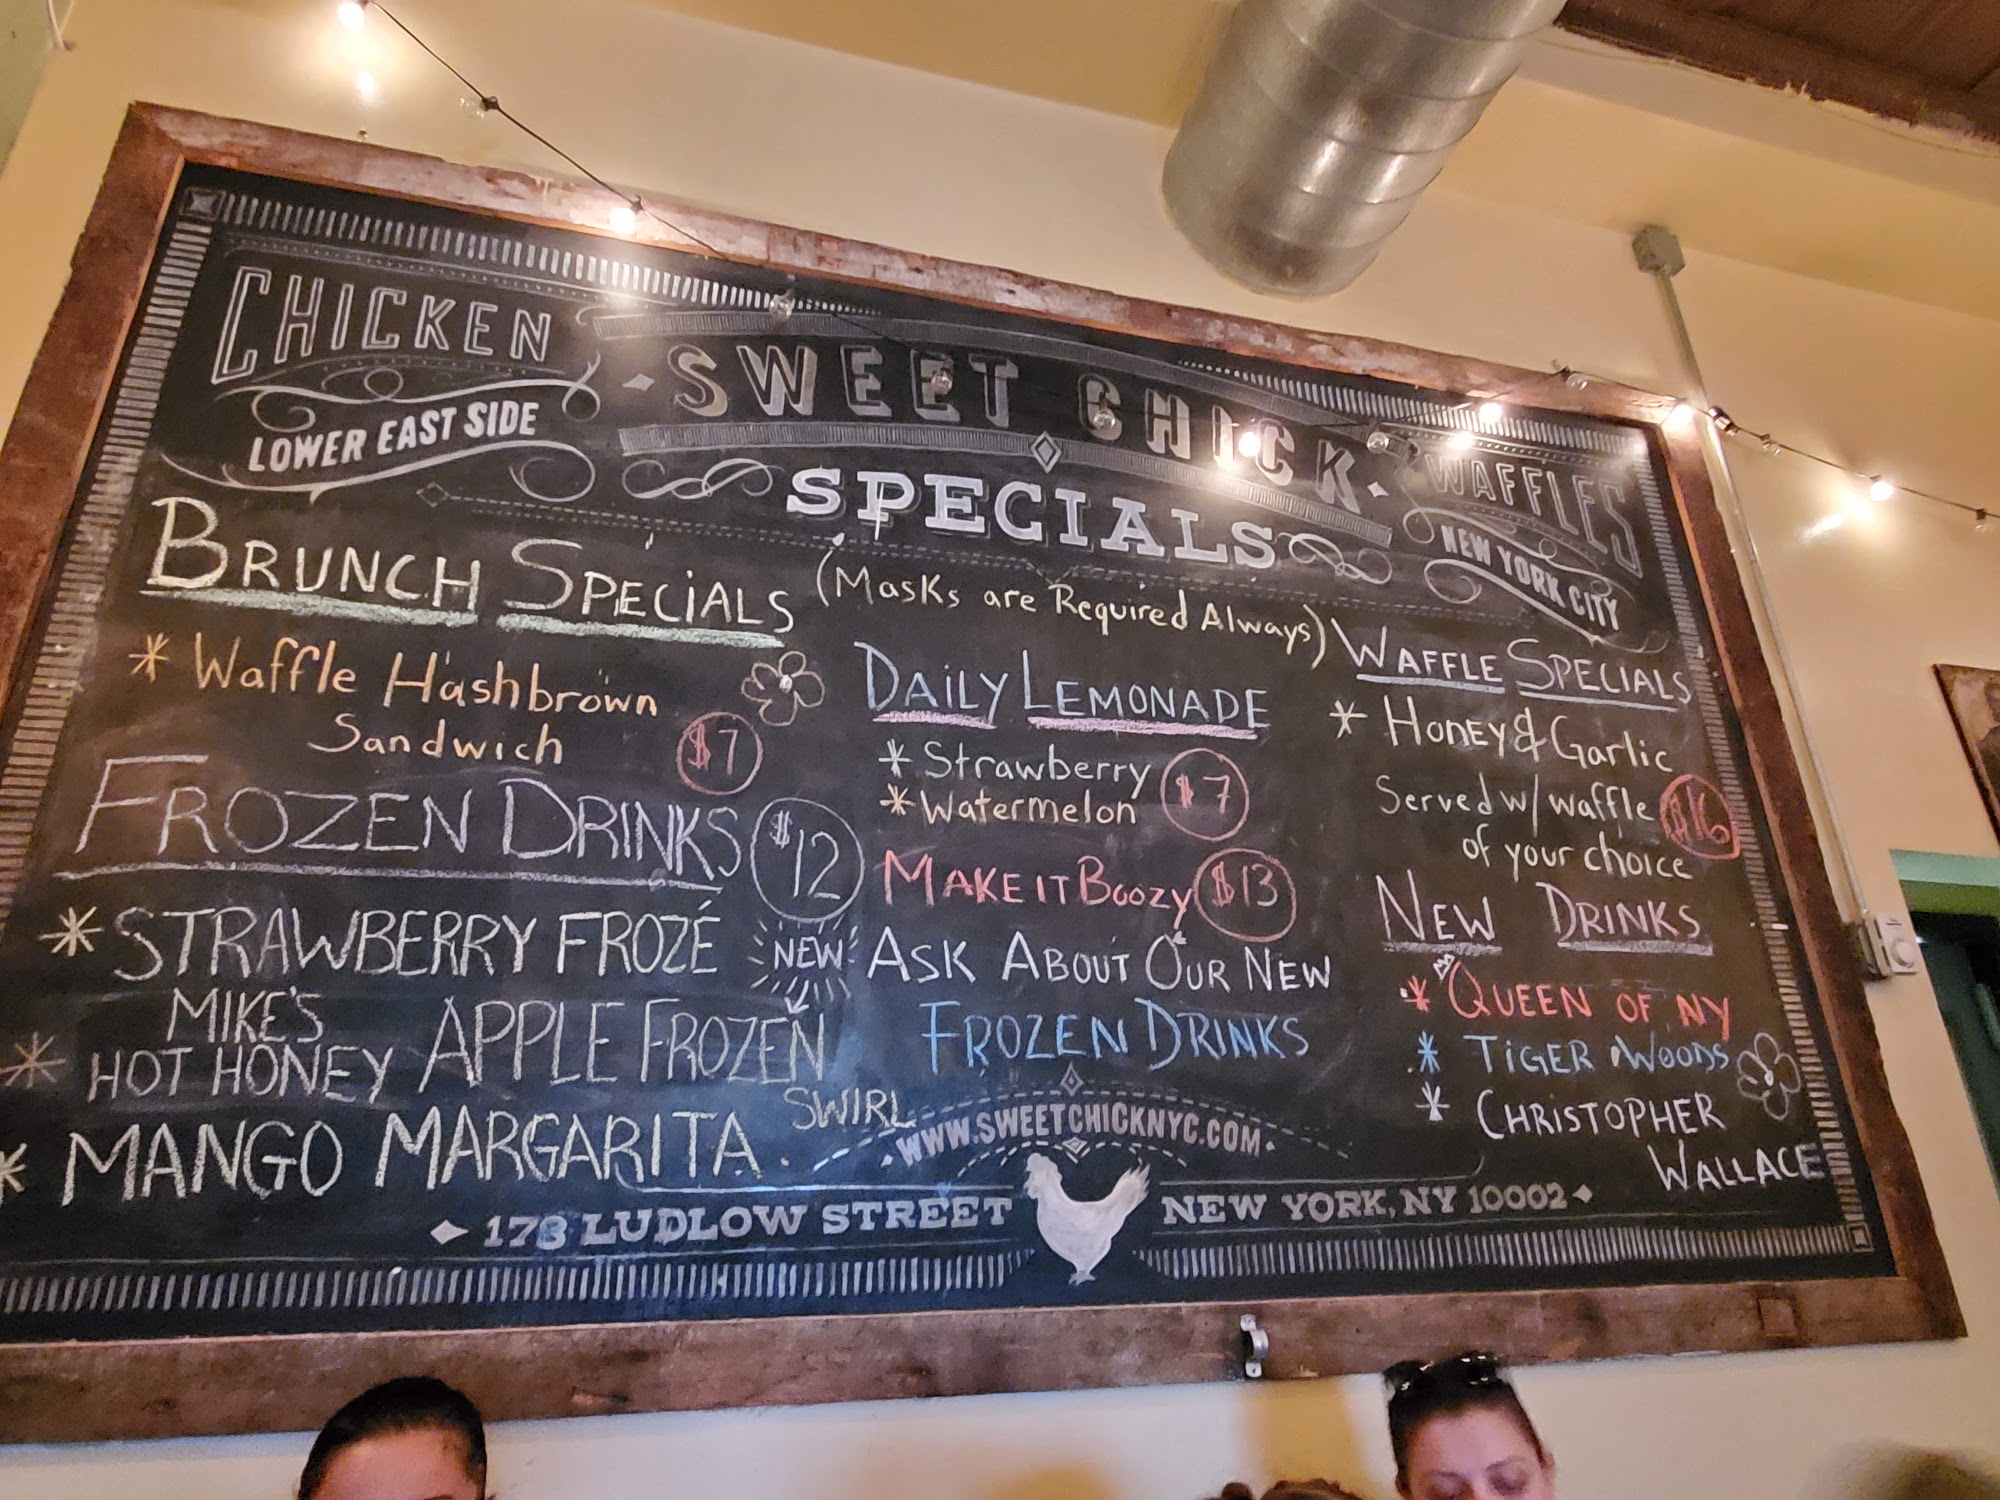 CHICKEN
LOWER EAST SIDE
SWEET CHICK
SPECIALS
WAFFLES
NEW YORK CITY
(Masks are Required Always)
BRUNCH SPECIALS
* Waffle Hashbrown
Sandwich $7
FROZEN DRINKS $12
* STRAWBERRY FROZÉ
NEW
* MIKE'S
HOT HONEY APPLE FROZEN
SWIRL
* MANGO MARGARITA
DAILY LEMONADE
* Strawberry
* Watermelon
$7
MAKE IT BOOZY $13
ASK ABOUT OUR NEW
FROZEN DRINKS
WAFFLE SPECIALS
* HONEY & Garlic
Served w/ waffle
of your choice
$16
NEW DRINKS
* QUEEN OF NY
* TIGER WOODS
* CHRISTOPHER
WALLACE
WWW.SWEETCHICKNYC.COM
178 LUDLOW STREET NEW YORK, NY 10002